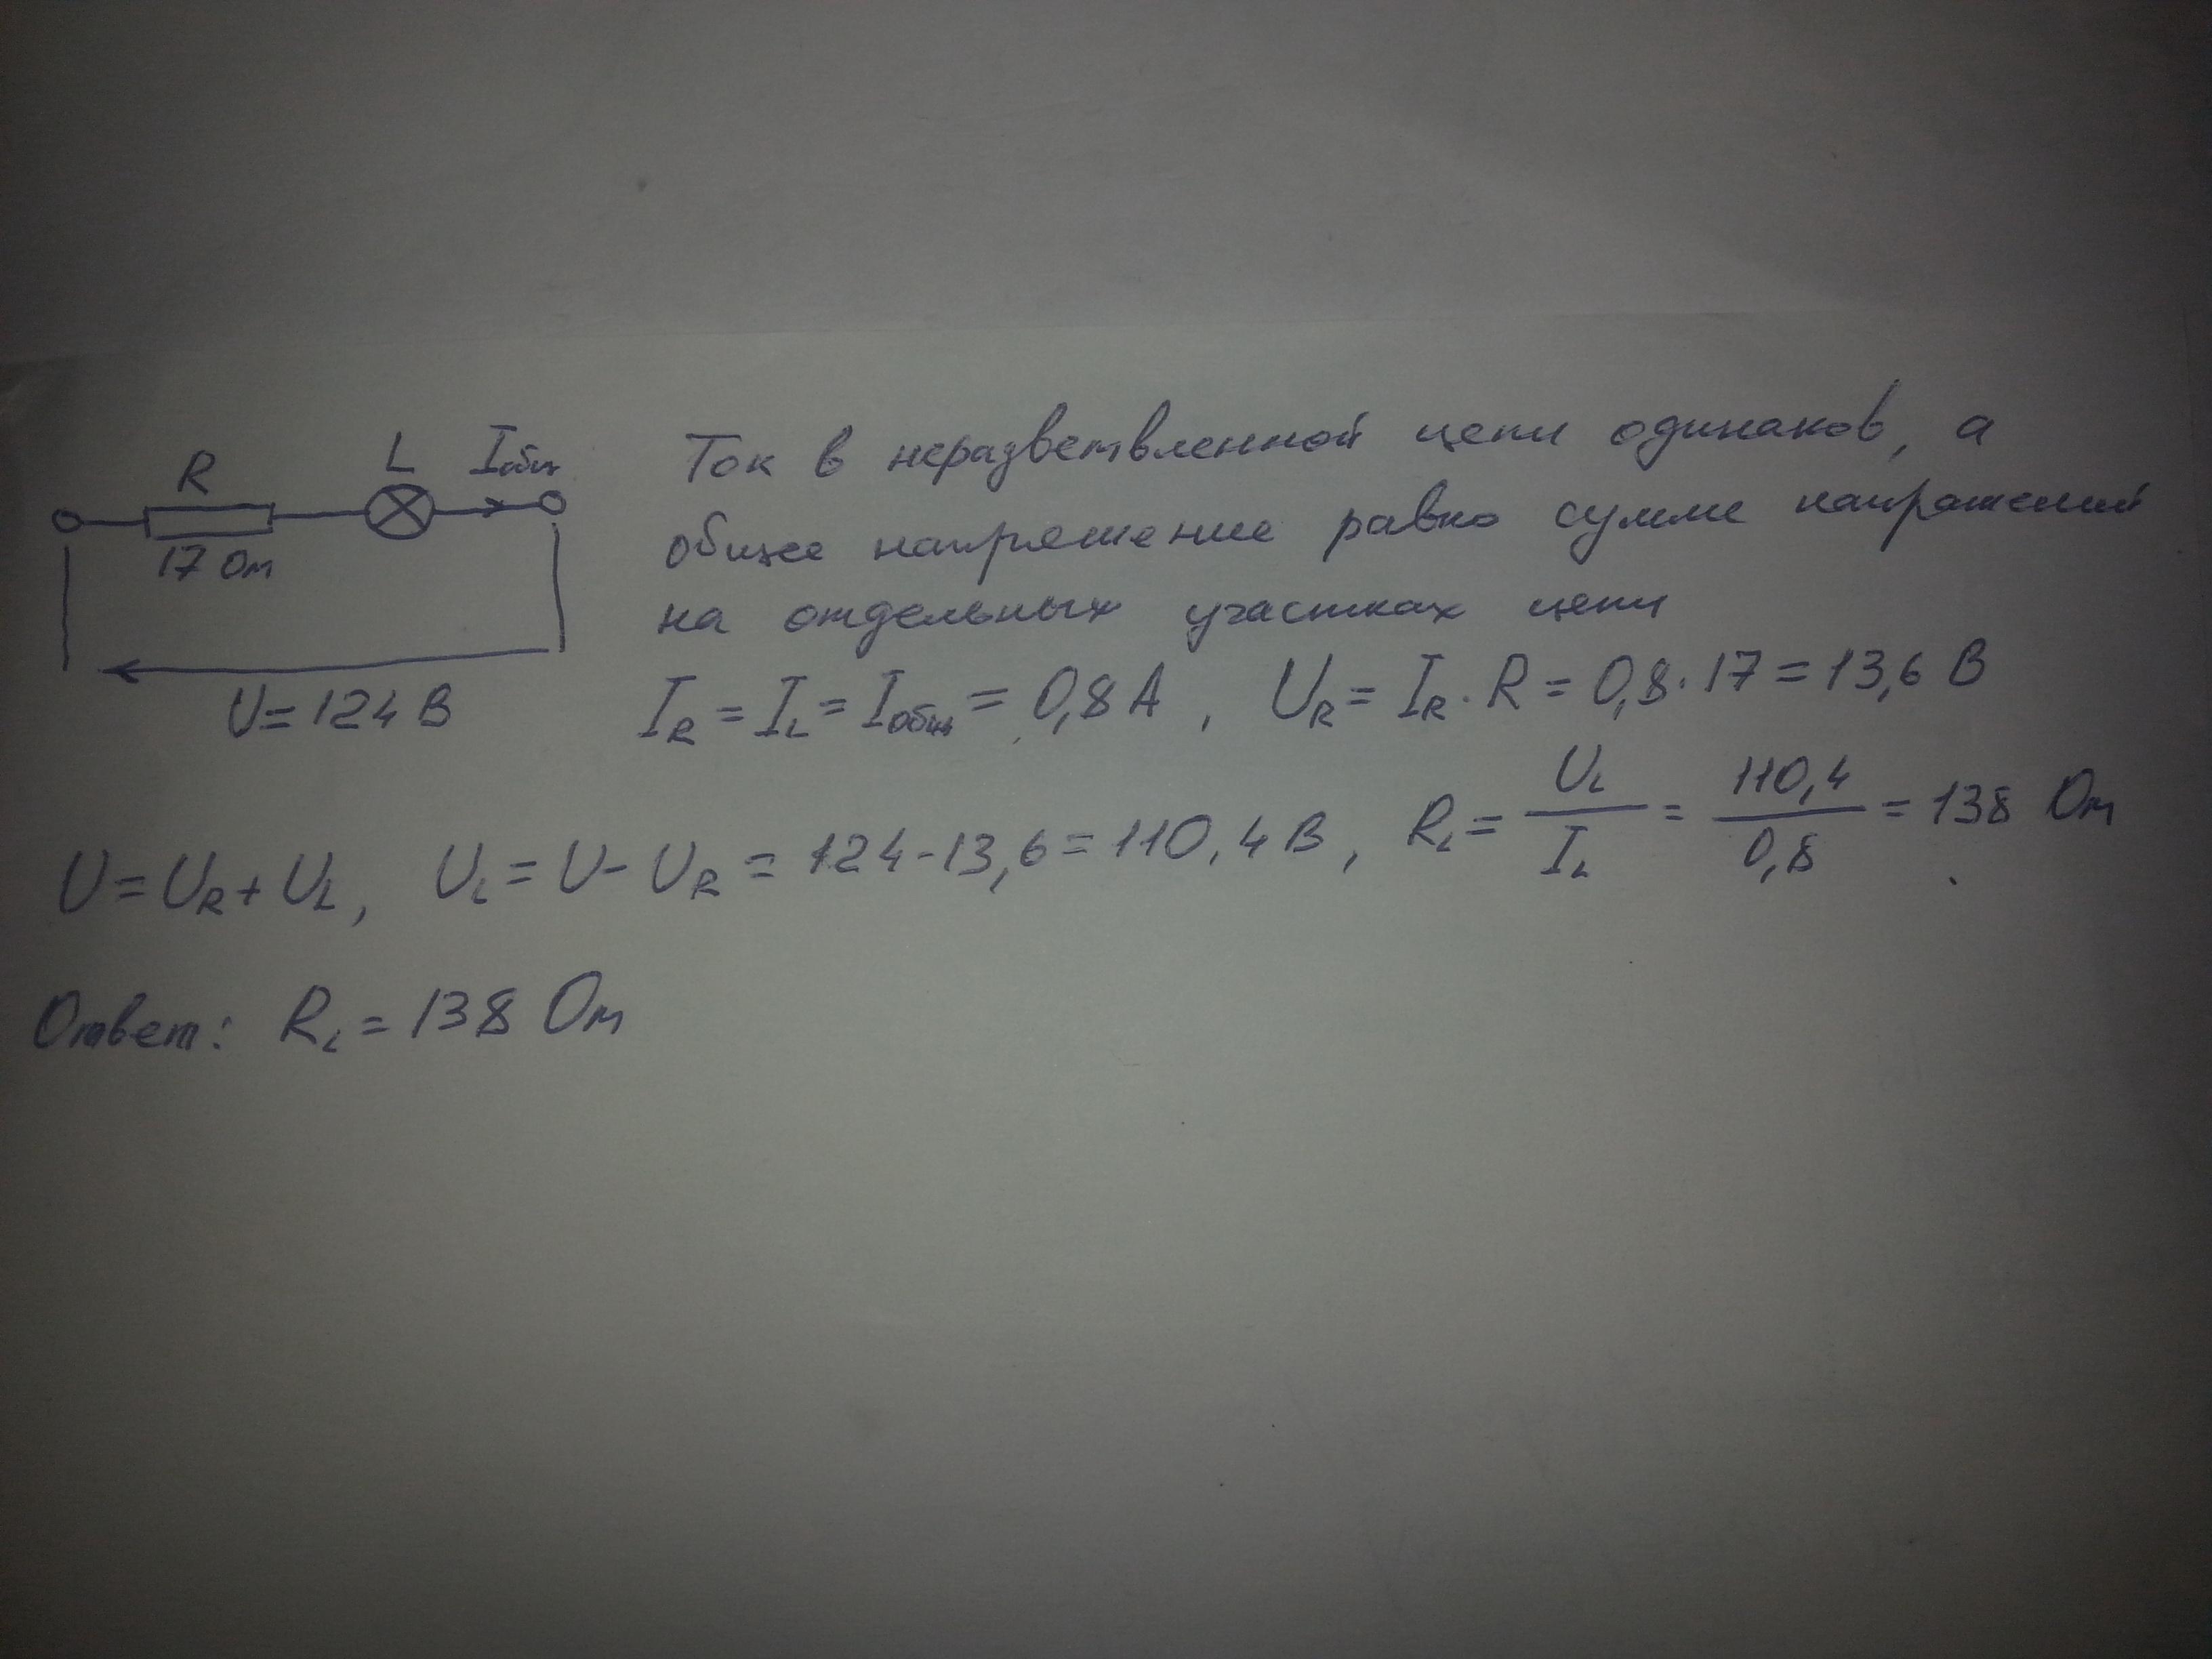 R
L
Iобщ
17 Ом
U=124 В
Ток в неразветвленной цепи одинаков, а
общее напряжение равно сумме напряжений
на отдельных участках цепи
I_R = I_L = I_общ = 0,8 А , U_R = I_R · R = 0,8 · 17 = 13,6 В
U = U_R + U_L , U_L = U - U_R = 124 - 13,6 = 110,4 В , R_L = U_L / I_L = 110,4 / 0,8 = 138 Ом
Ответ: R_L = 138 Ом